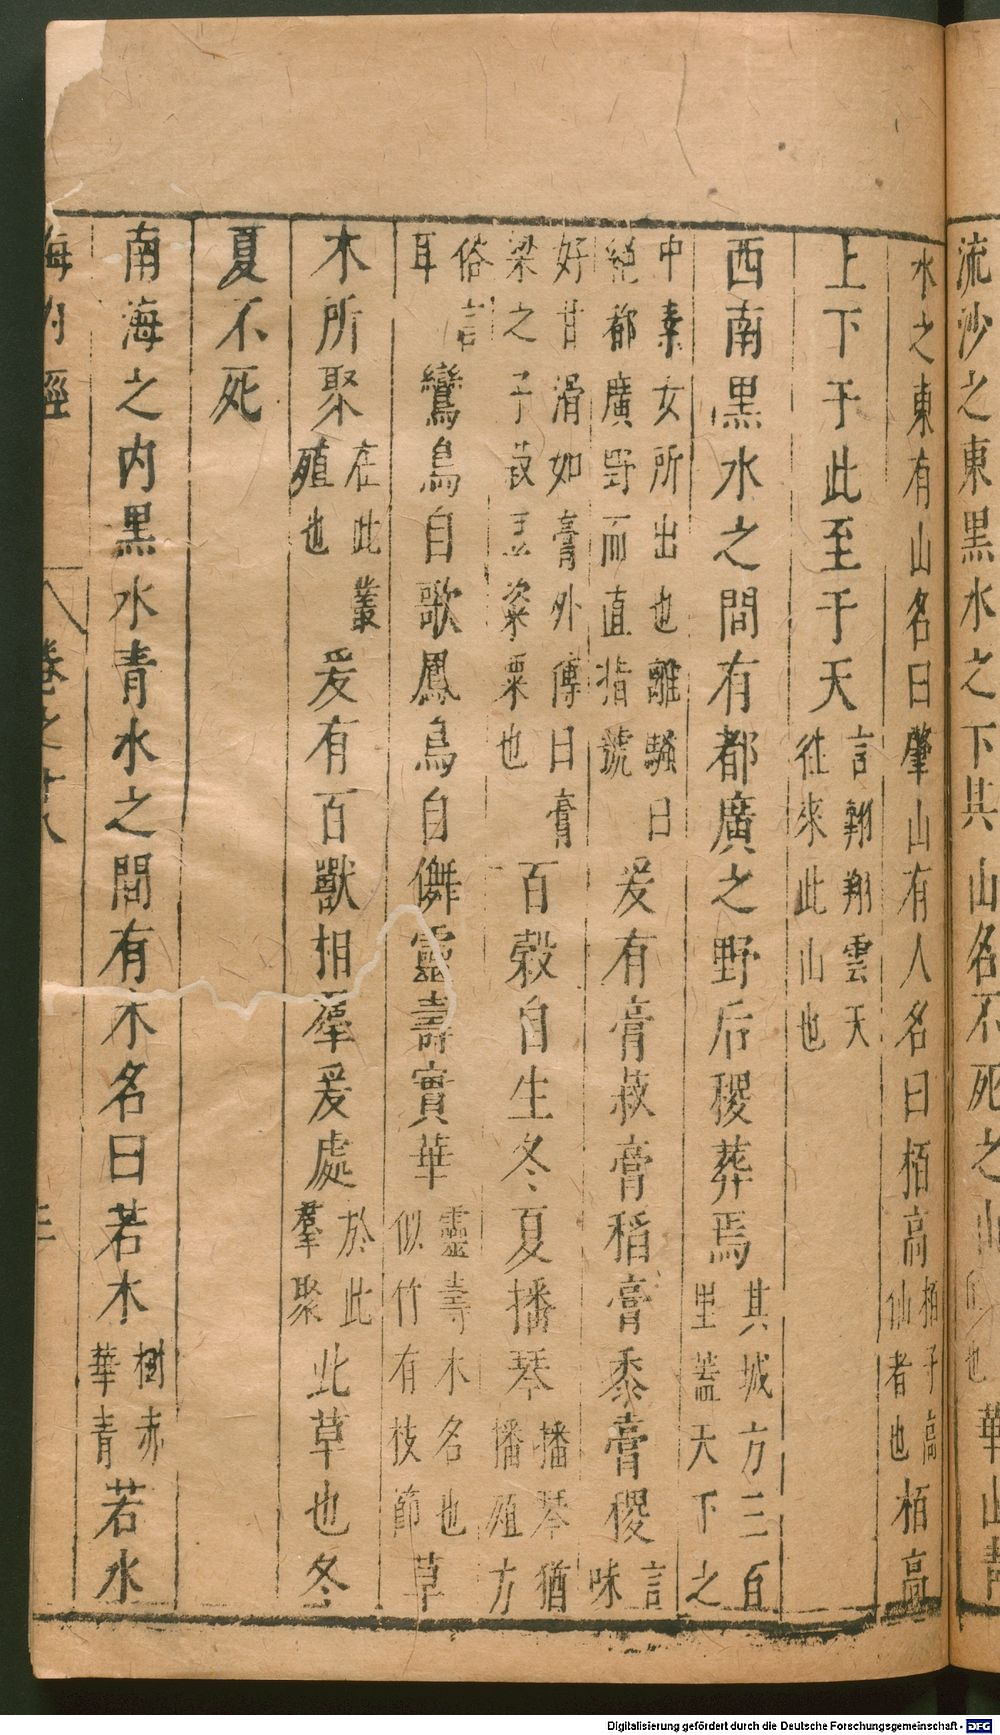 流沙之東黑水之下其 山名不死之山 也 華山青
水之東有山名曰肇山有人名曰栢高栢子高仙者也栢高
上下于此至于天言翱翔雲天往來此山也
西南黑水之間有都廣之野后稷葬焉其城方三百里蓋天下之
中素女所出也離騷曰絕都廣野而直指號爰有膏菽膏稻膏黍膏稷言味
好甘滑如膏外傳曰膏梁之子菽 粢粟也百榖自生冬夏播琴播琴猶播殖方
俗言耳鸞鳥自歌鳳鳥自儛靈壽實華靈壽木名也似竹有枝節草
木所聚在此叢殖也爰有百獸相羣爰處於此羣聚此草也冬
夏不死
南海之内黑水青水之間有木名曰若木樹赤華青若水
海内經 卷之十八 二
Digitalisierung gefördert durch die Deutsche Forschungsgemeinschaft - DFG